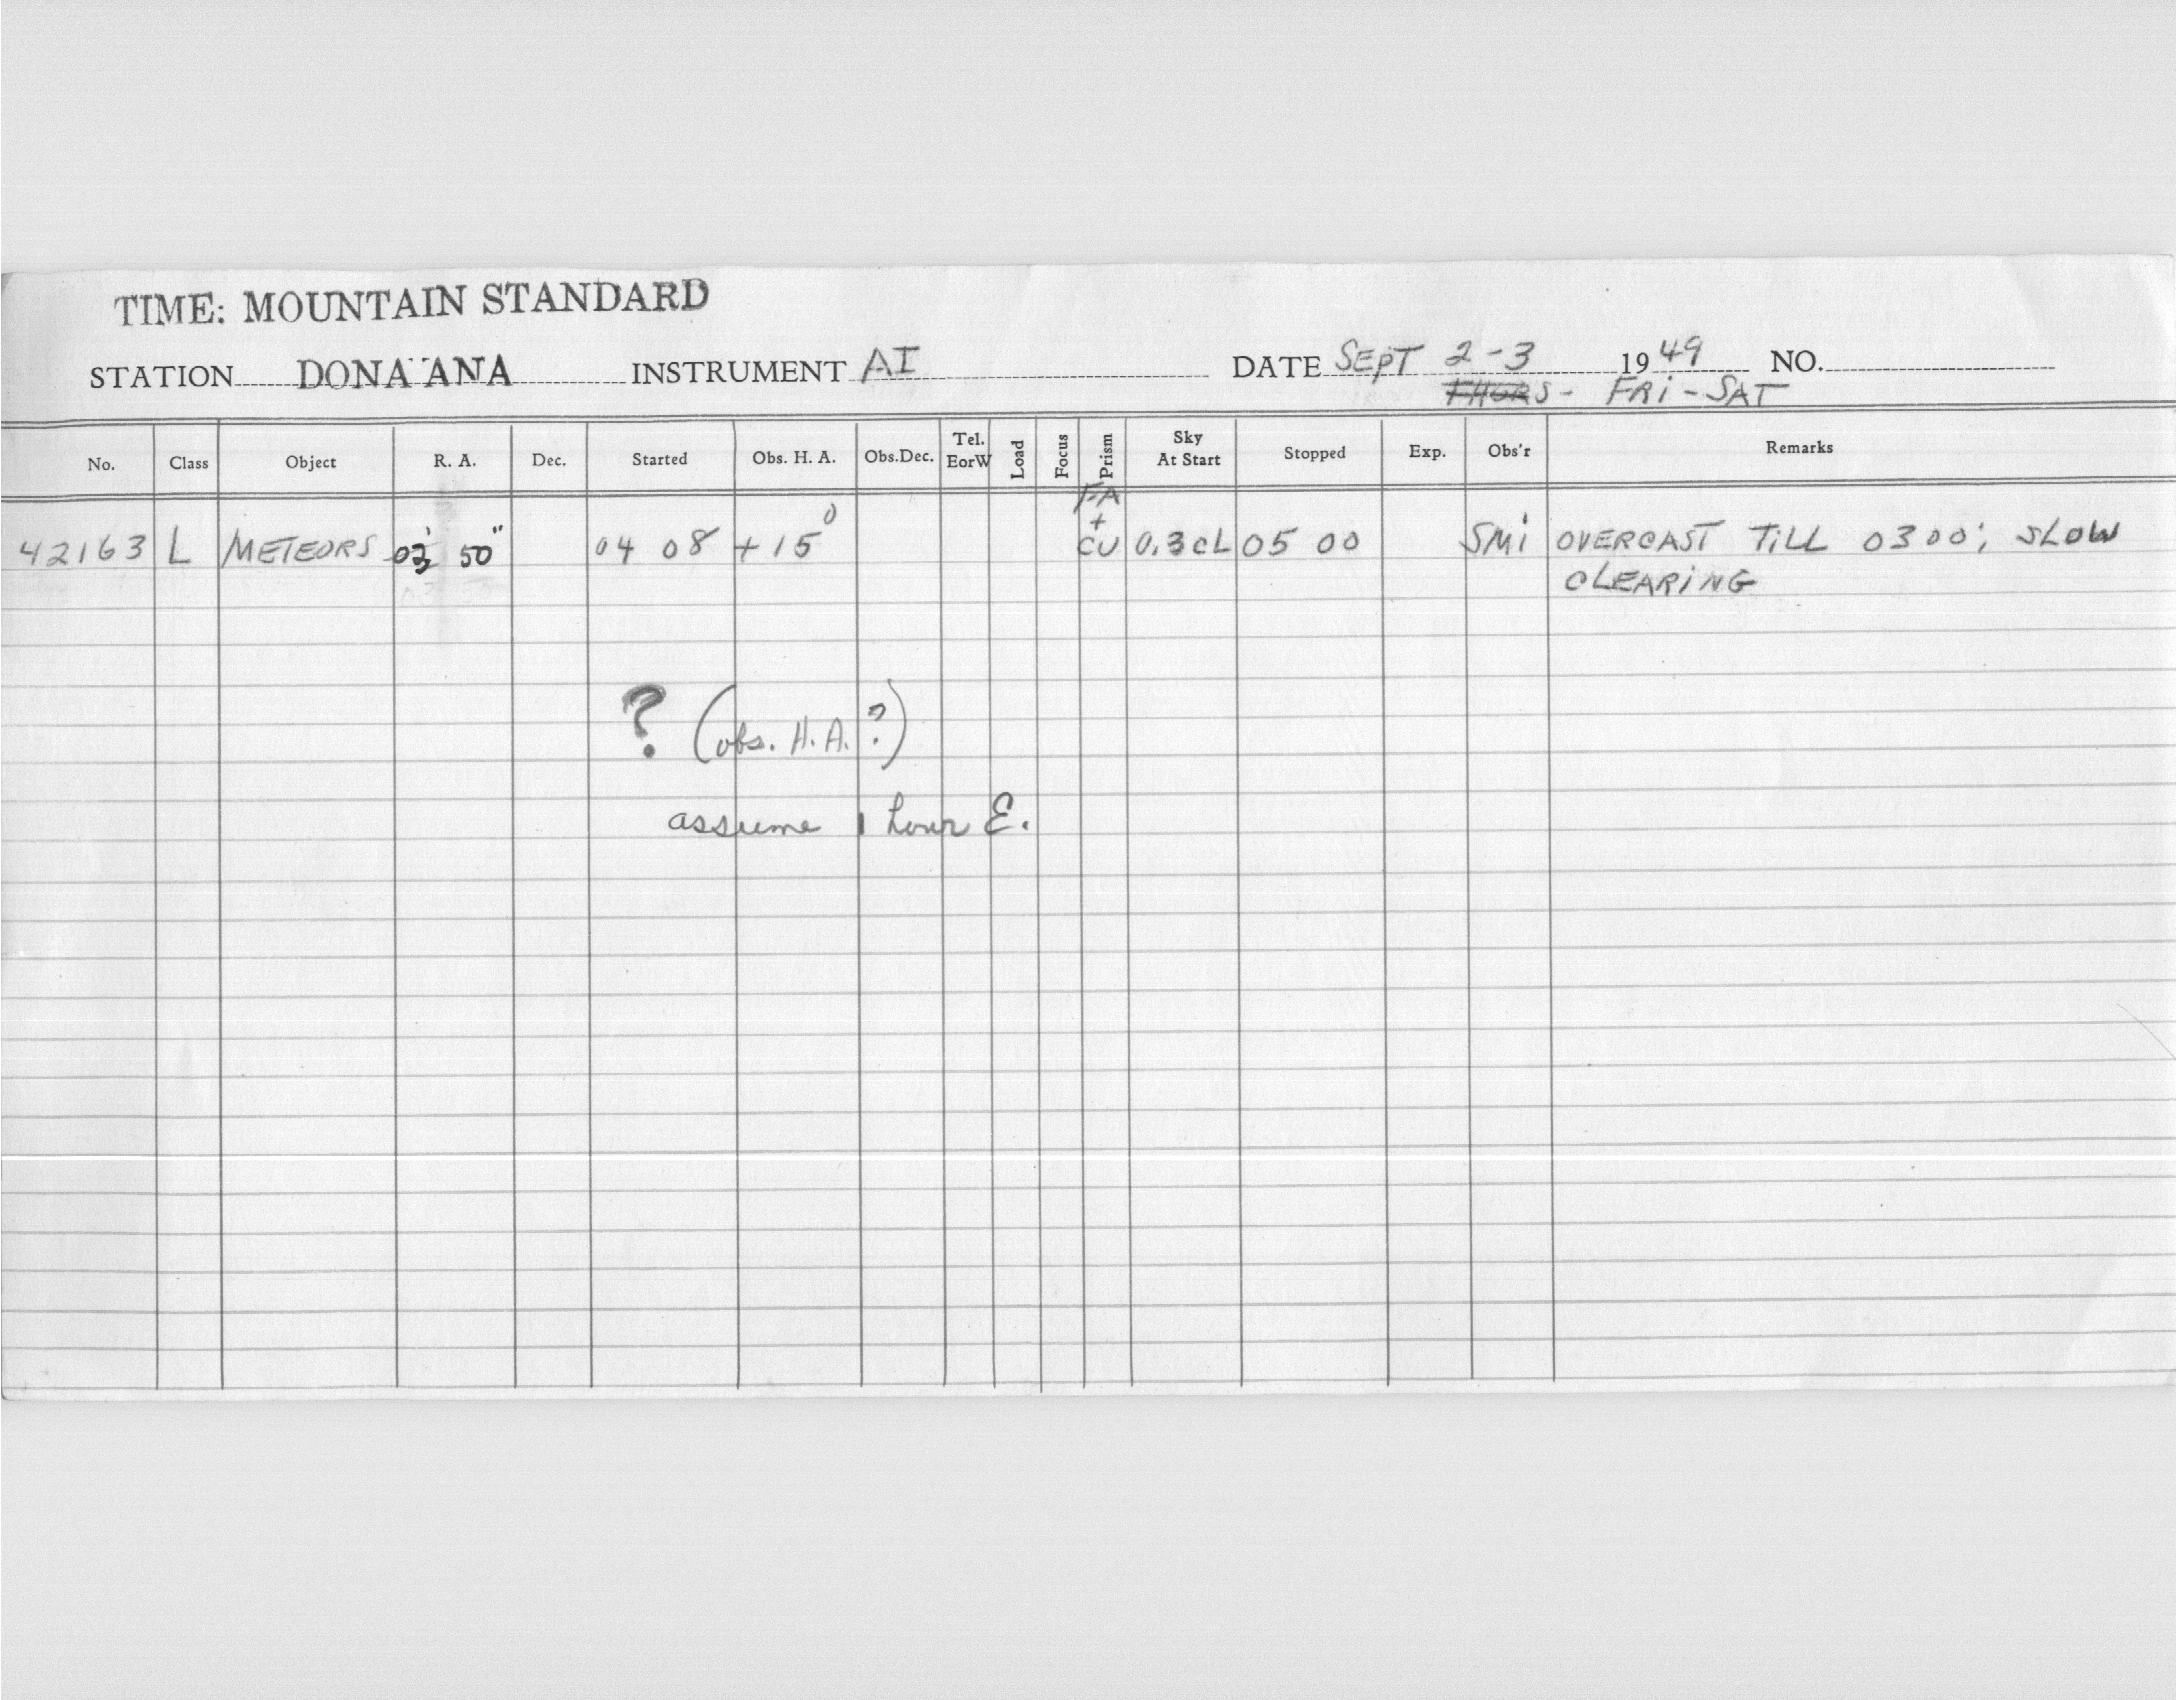 TIME: MOUNTAIN STANDARD
STATION DONA ANA INSTRUMENT AI DATE SEPT 2-3 1949 NO.
THURS - FRI - SAT
No. Class Object R. A. Dec. Started Obs. H. A. Obs.Dec. Tel. EorW Load Focus Prism Sky At Start Stopped Exp. Obs'r Remarks
42163 L METEORS 03, 50" 04 08 +15° FA + CU 0.3 CL 05 00 SMi OVERCAST TiLL 0300; SLOW
CLEARiNG
? (obs. H. A. ?)
assume 1 hour E.